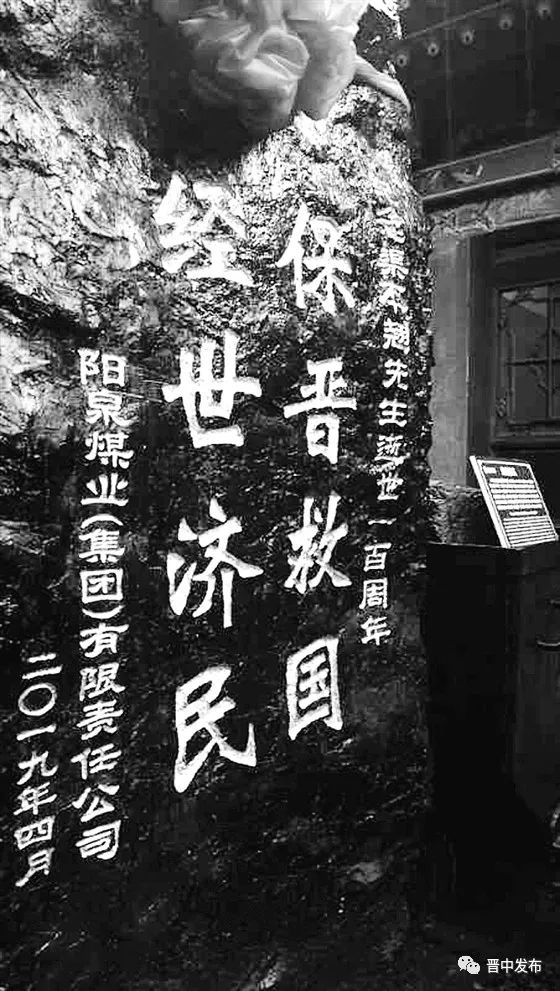 渠本翘先生逝世一百周年
保晋救国
经世济民
阳泉煤业(集团)有限责任公司
二〇一九年四月
晋中发布